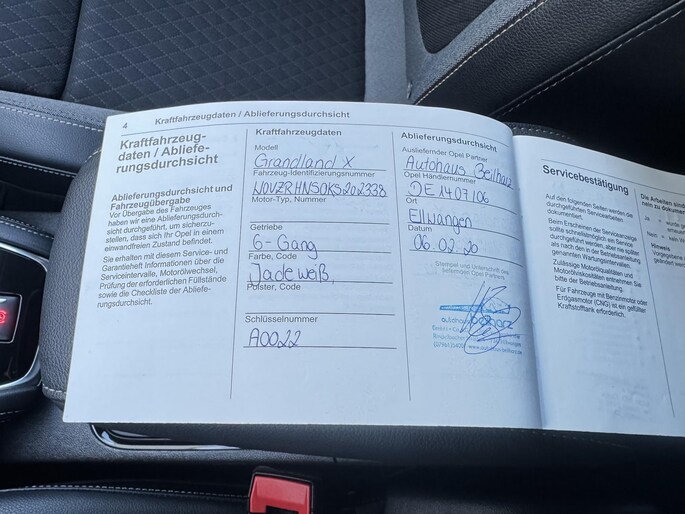 4 Kraftfahrzeugdaten / Ablieferungsdurchsicht
Kraftfahrzeug-
daten / Abliefe-
rungsdurchsicht
Ablieferungsdurchsicht und
Fahrzeugübergabe
Vor Übergabe des Fahrzeuges
haben wir eine Ablieferungsdurch-
sicht durchgeführt, um sicherzu-
stellen, dass sich Ihr Opel in einem
einwandfreien Zustand befindet.
Sie erhalten mit diesem Service- und
Garantieheft Informationen über die
Serviceintervalle, Motorölwechsel,
Prüfung der erforderlichen Füllstände
sowie die Checkliste der Abliefe-
rungsdurchsicht.
Kraftfahrzeugdaten
Modell
Grandland X
Fahrzeug-Identifizierungsnummer
WOVZRHNSOKS202338
Motor-Typ, Nummer
Getriebe
6-Gang
Farbe, Code
Jadeweiß
Polster, Code
Schlüsselnummer
A0022
Ablieferungsdurchsicht
Ausliefernder Opel Partner
Autohaus Beilharz
Opel Händlernummer
DE1407106
Ort
Ellwangen
Datum
06.02.20
Stempel und Unterschrift des
liefernden Opel Partners
autohaus
Servicebestätigung
Auf den folgenden Seiten werden die
durchgeführten Servicearbeiten
dokumentiert.
Beim Erscheinen der Serviceanzeige
sollte schnellstmöglich ein Service
durchgeführt werden, aber nie später
als nach den in der Betriebsanleitung
genannten Wartungsintervallen.
Zulässige Motorölqualitäten und
Motorölviskositäten entnehmen Sie
bitte der Betriebsanleitung.
Für Fahrzeuge mit Benzinmotor oder
Erdgasmotor (CNG) ist ein gefüllter
Kraftstofftank erforderlich.
Die Arbeiten sind
nein zu dokumen
Ja = wurde
Nein =
Hinweis